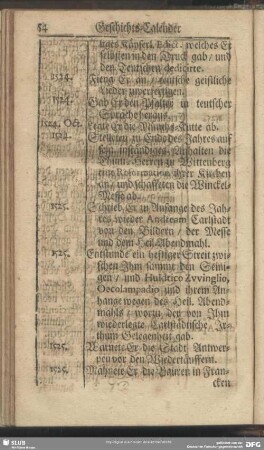 54 Geschichts-Calender
tiges Käyserl. Edict, welches Er
selbsten in den Druck gab / und
den Teutschen dedicirte.
1524. Fieng Er an / teutsche geistliche
Lieder zuverfertigen.
1524. Gab Er den Psalter in teutscher
Sprache heraus.
1524. Oct. Legte Er die Münchs-Kutte ab.
1524. Stelleten zu Ende des Jahres auf
sein inständiges Anhalten die
Thum-Herren zu Wittenberg
eine Reformation ihrer Kirchen
an / und schaffeten die Winckel-
Messe ab.
1525. Schrieb Er zu Anfange des Jah-
res wieder Andream Carlstadt
von den Bildern / der Messe
und dem Heil. Abendmahl.
1525. Entstunde ein hefftiger Streit zwi-
schen Ihm sammt den Seini-
gen / und Huldrico Zvvinglio,
Oecolampadio und ihrem An-
hange wegen des Heil. Abend-
mahls / worzu der von Ihm
wiederlegte Carlstädtische Irr-
thum Gelegenheit gab.
1525. Warnete Er die Stadt Antwer-
pen vor den Wiedertäuffern.
1525. Mahnete Er die Bauren in Fran-
cken
SLUB